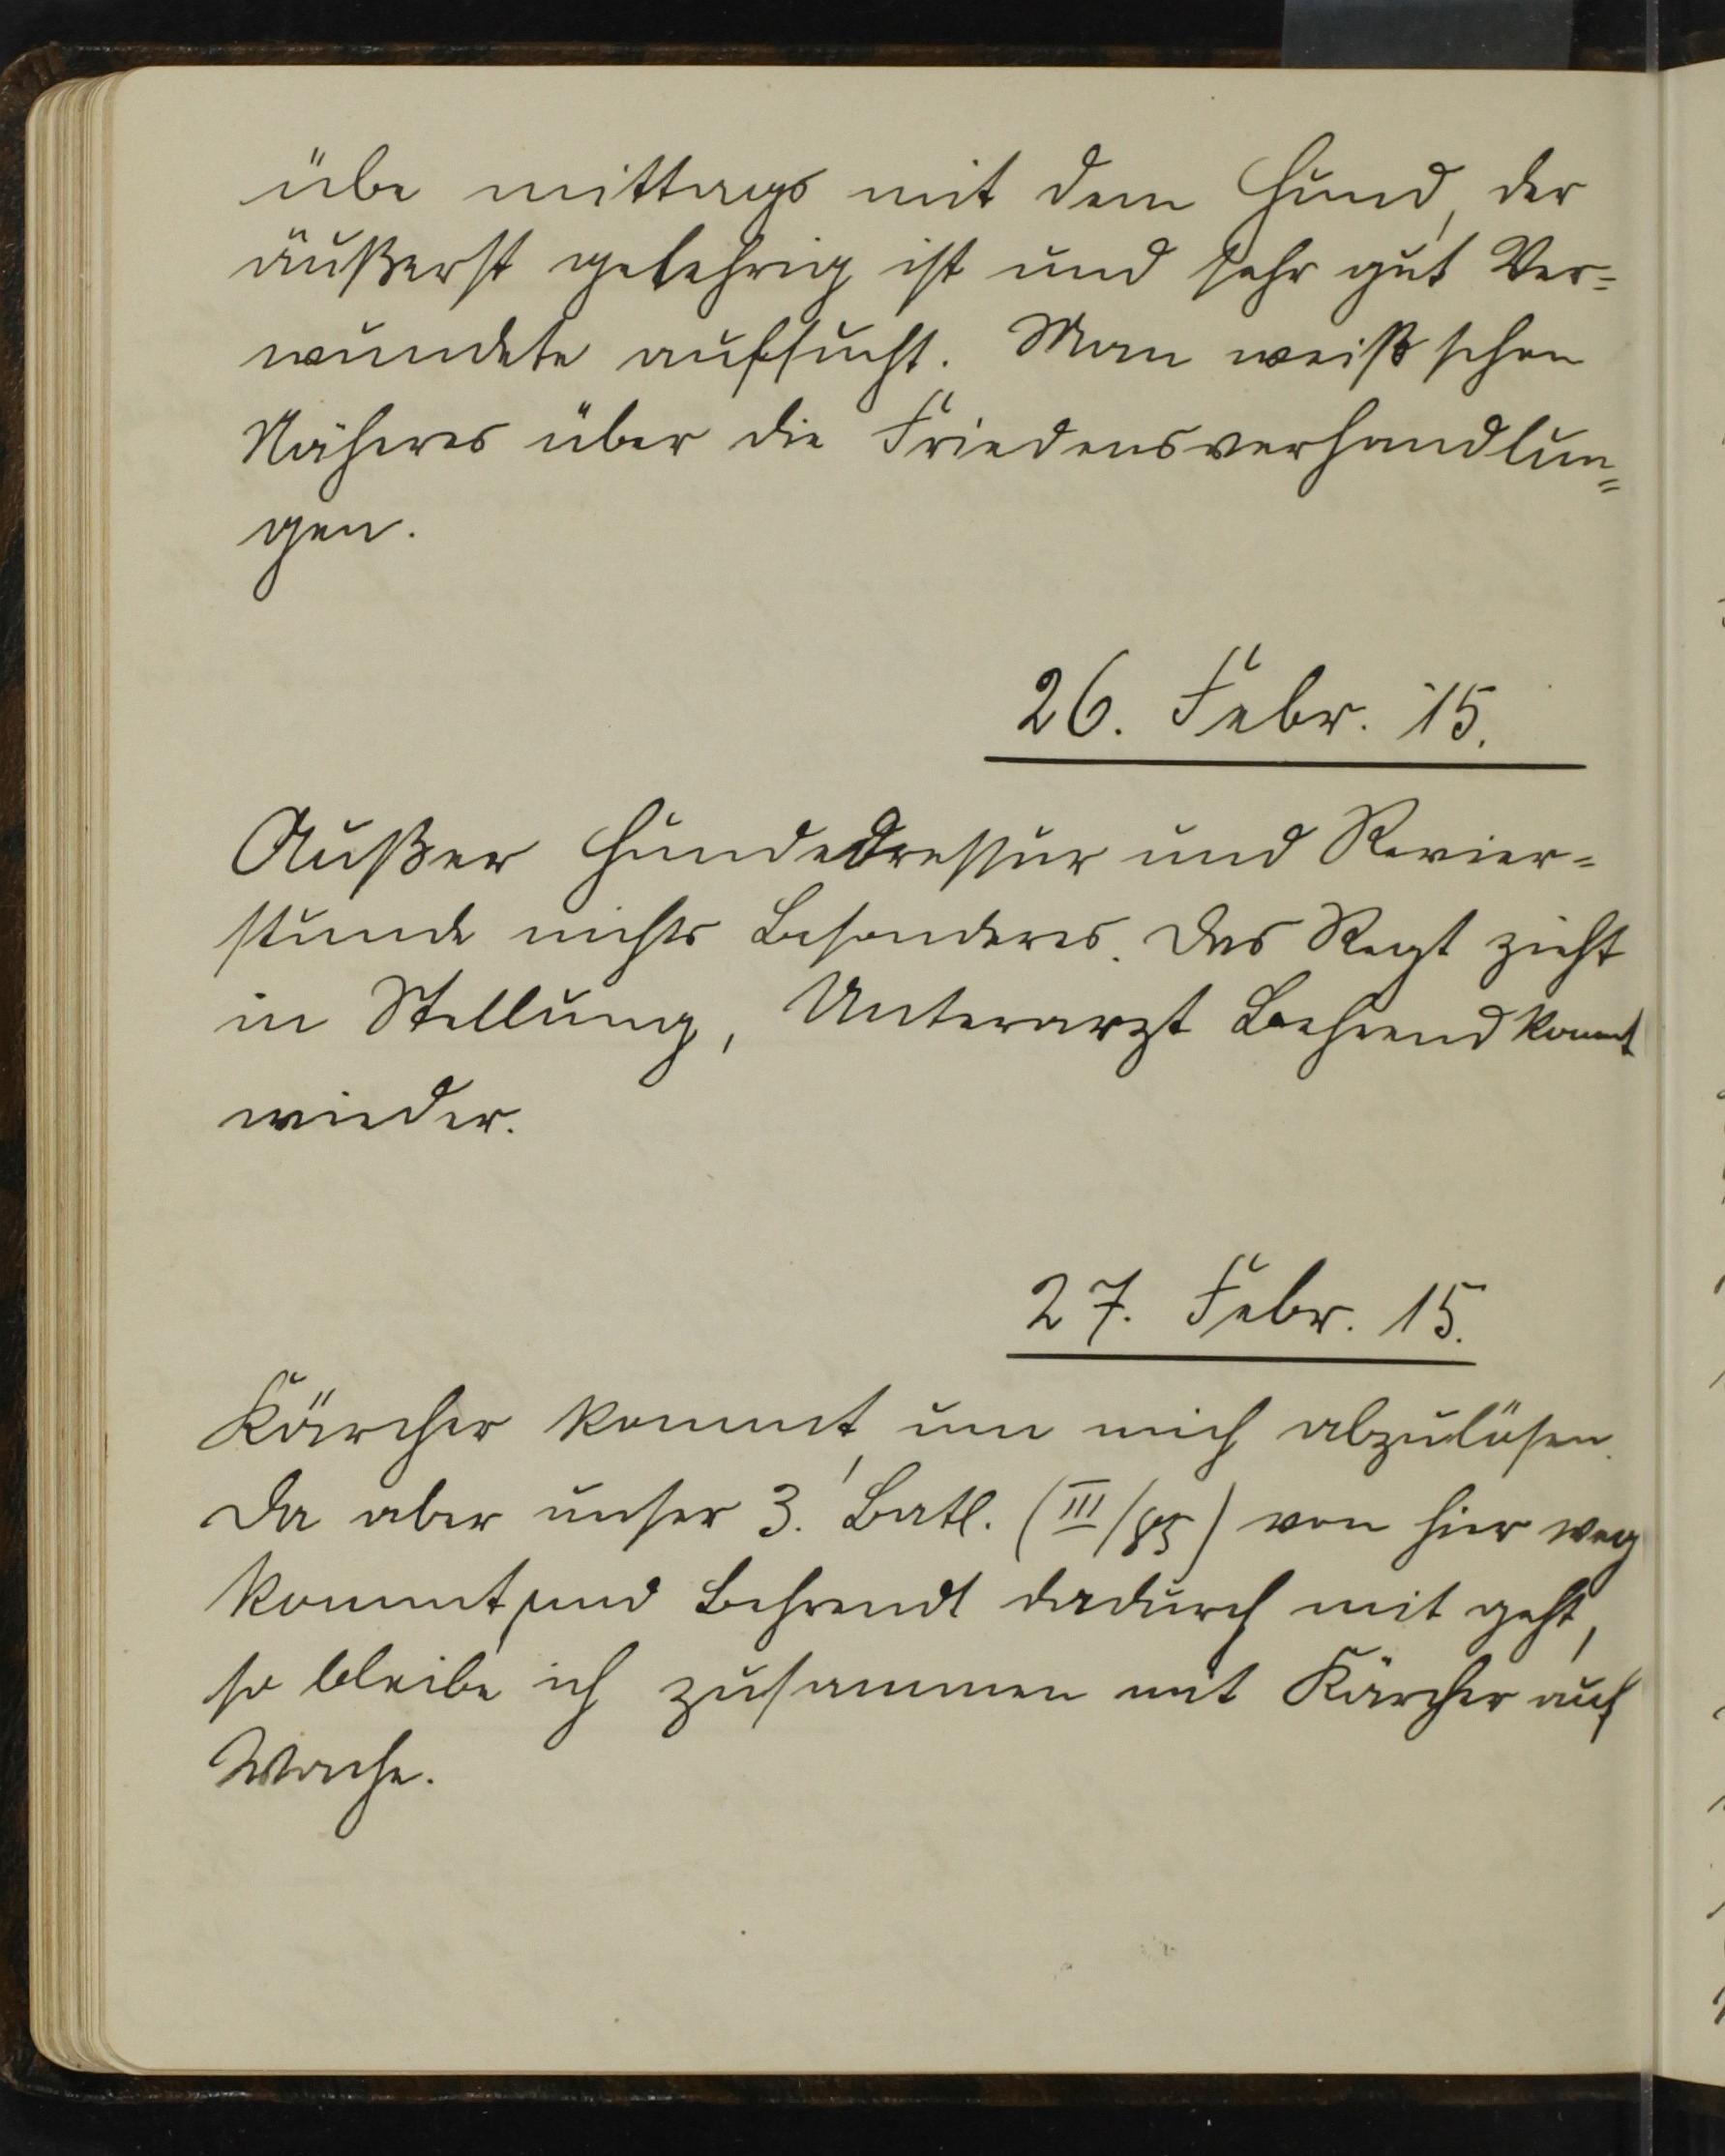 übe mittags mit dem Hund, der
äußerst gelehrig ist und sehr gut Ver=
wundete aufsucht. Man weiß schon
Näheres über die Friedensverhandlun=
gen.
26. Febr. 15.
Außer Hundedressur und Revier=
stunde nichts Besonderes. Das Regt zieht
in Stellung, Unterarzt Behrend kommt
wieder.
27. Febr. 15.
Kärcher kommt, um mich abzulösen.
Da aber unser 3. Batl. (III/85) von hier weg
kommt, und Behrendt dadurch mit geht,
so bleibe ich zusammen mit Kärcher auf
Wache.